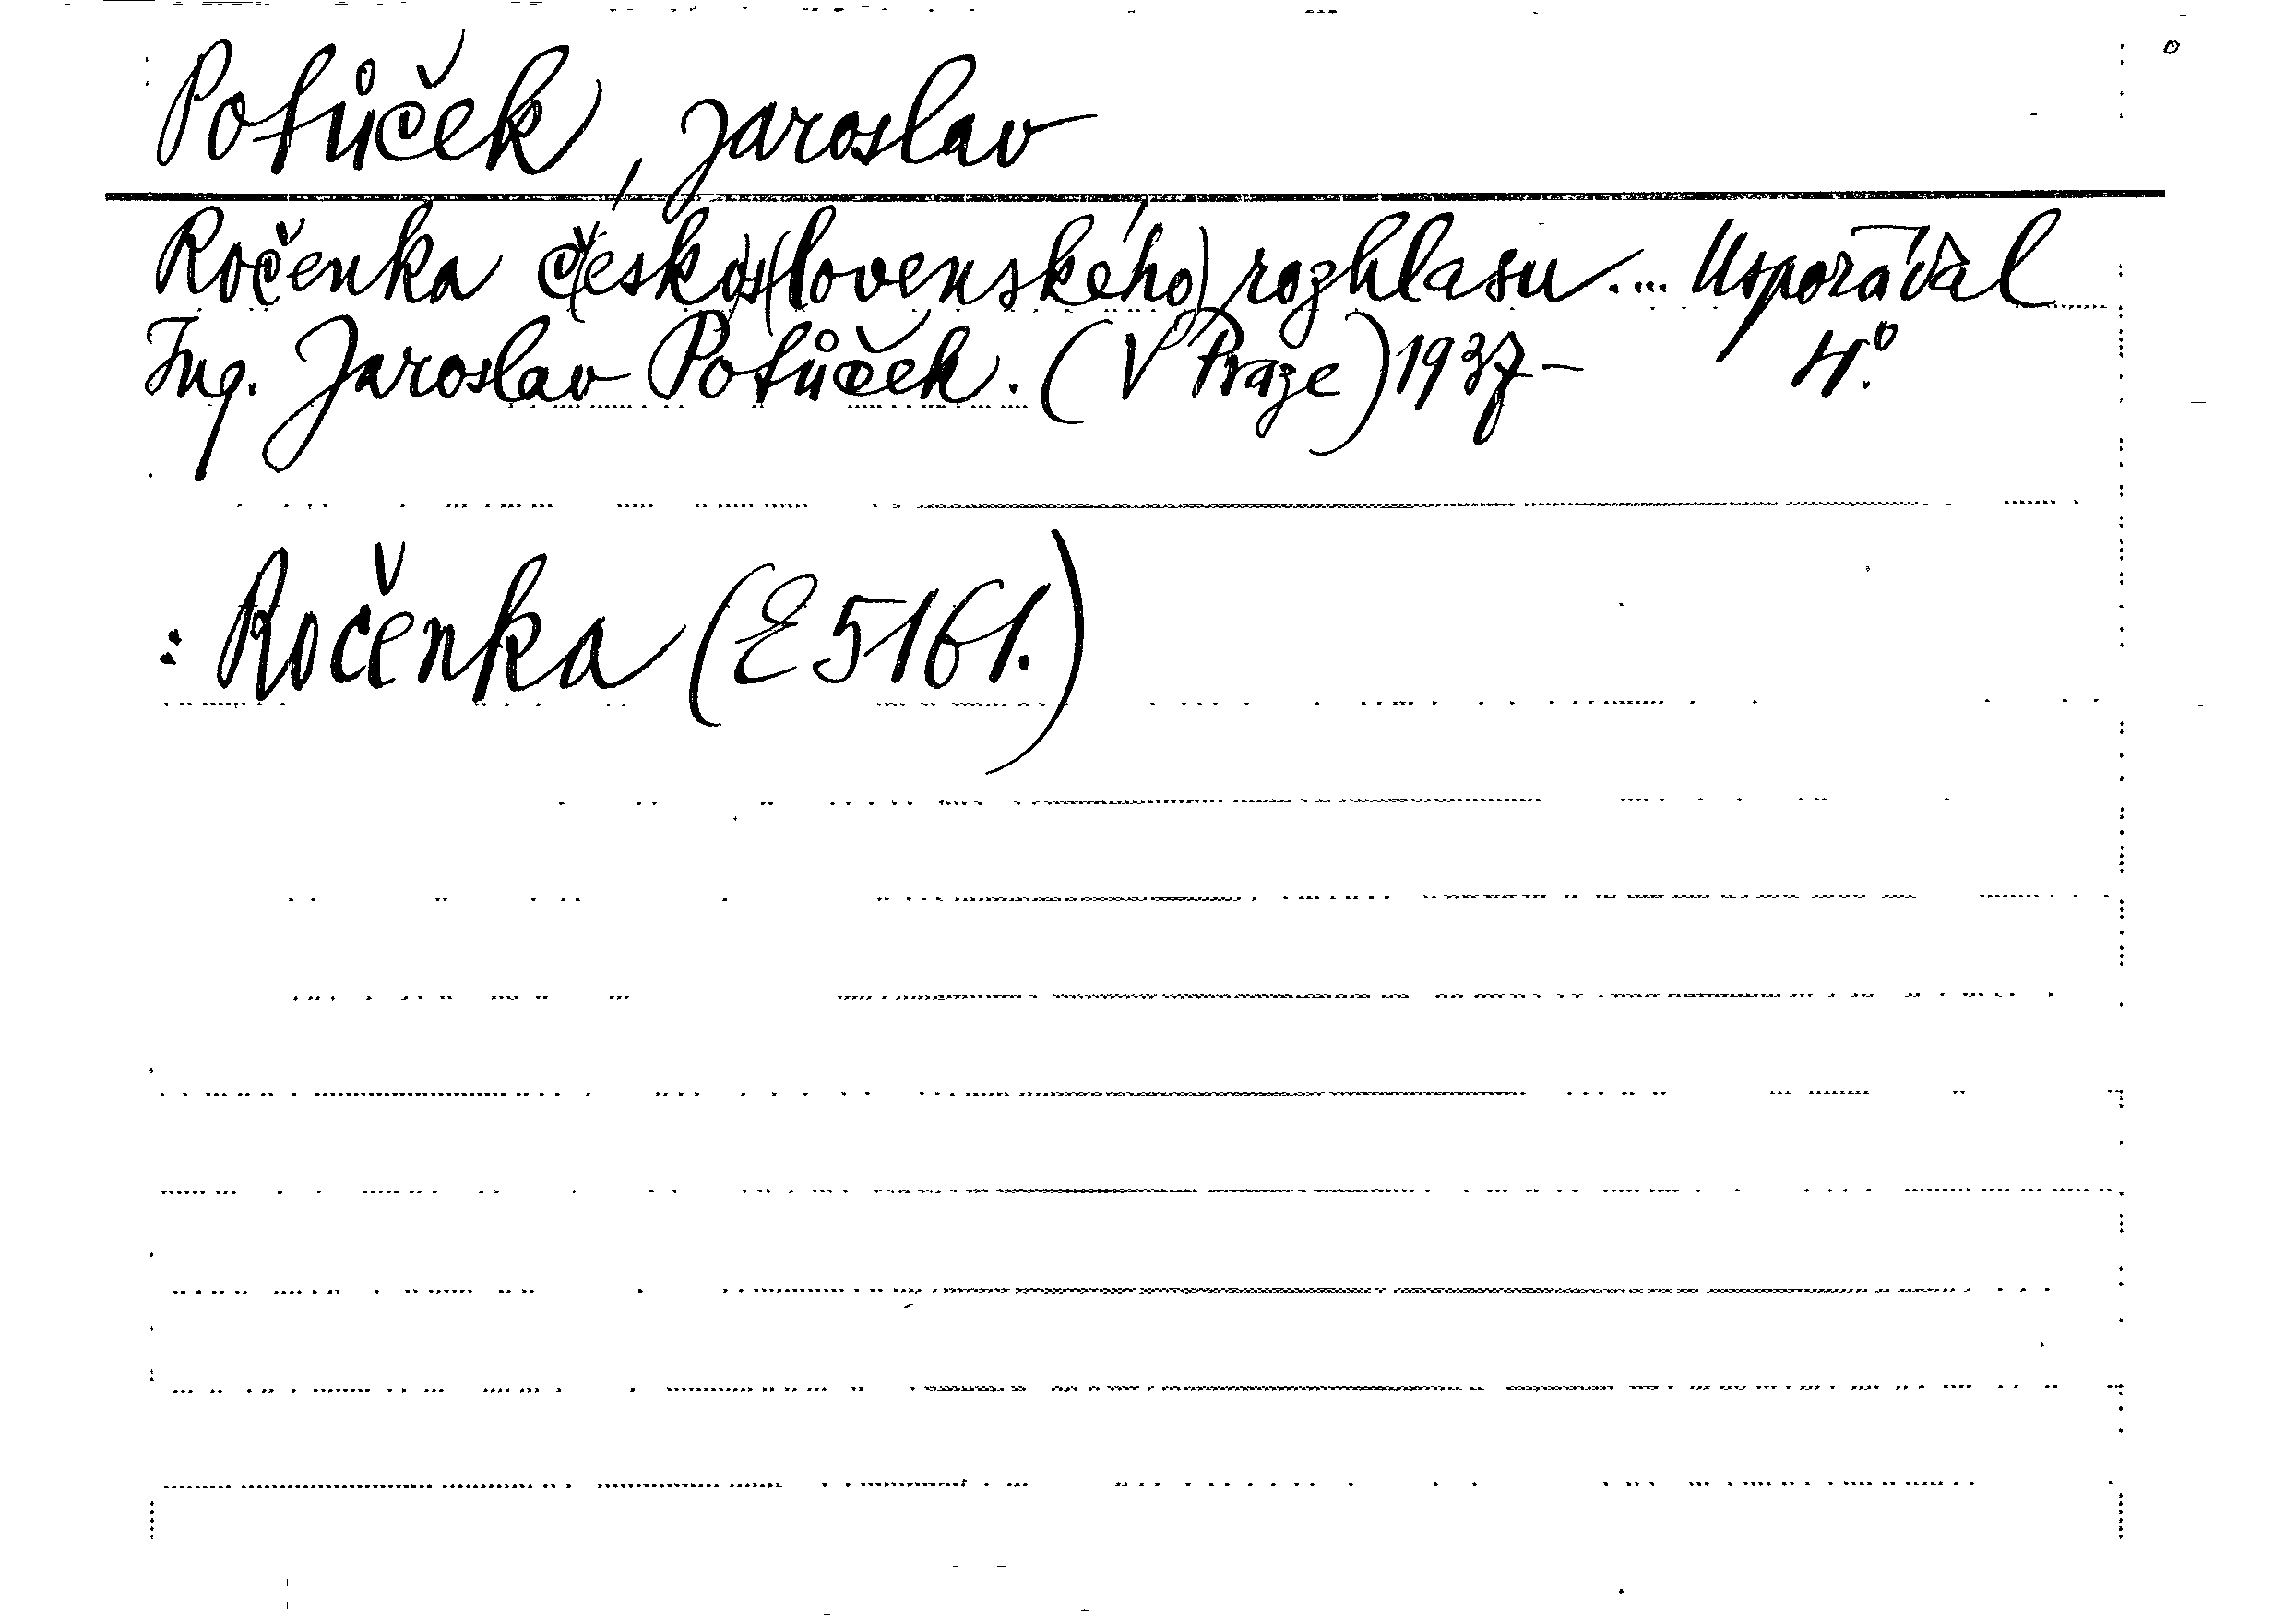 Potůček, Jaroslav
Ročenka č(esko)s(lovenského) rozhlasu.... Uspořádal
Ing. Jaroslav Potůček. (V Praze) 1937- 4°.
: Ročenka (E 5161.)